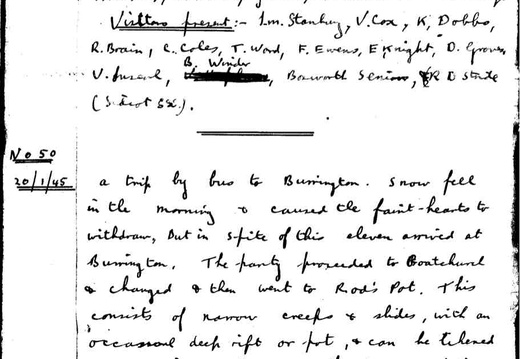 Visitors present:- I.M. Stanbury, V. Cox, K. Dobbs,
R. Brain, C. Coles, T. Word, F. Ewens, E Knight, D.
V. B. Winder, Bosworth Senior, & R D
No 50
20/1/45
a trip by bus to Burrington. Snow fell
in the morning & caused the faint-hearts to
withdraw, But in spite of this eleven arrived at
Burrington. The party proceeded to Goatchurch
& changed & then went to Rod's Pot. This
consists of narrow creeps & slides, with an
occasional deep rift or pot, & can be likened